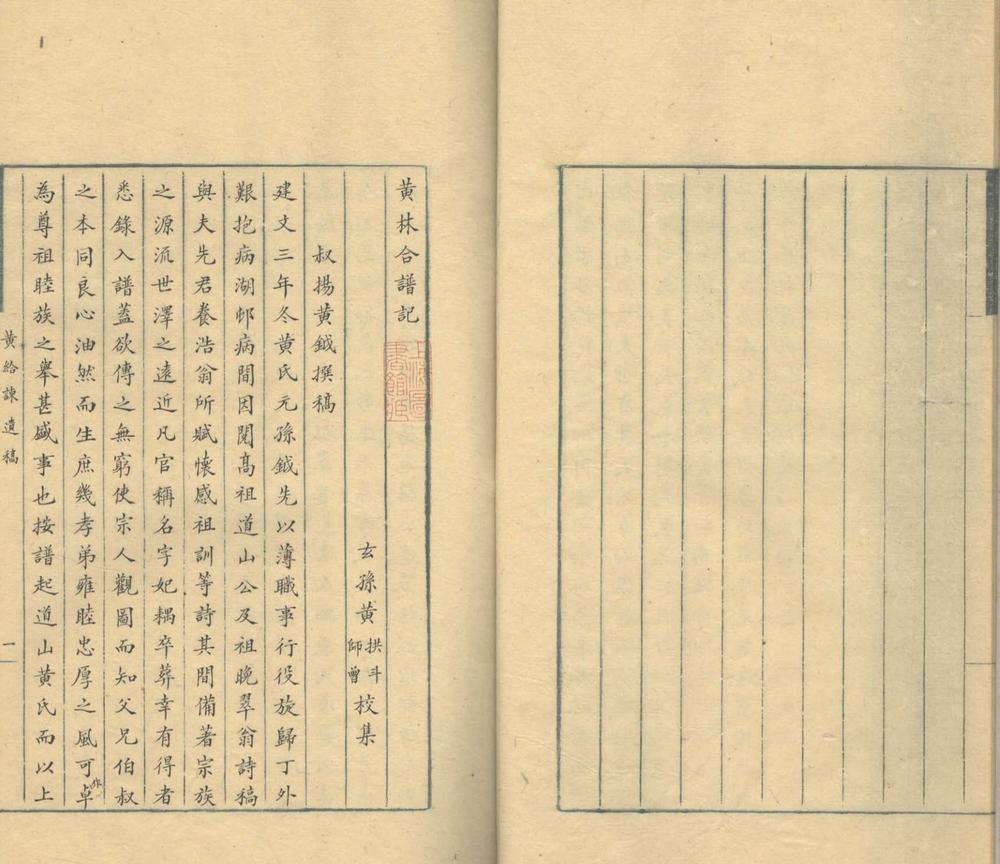 黃林合譜記
玄孫黃拱斗師曾校集
叔揚黃鉞撰稿
建文三年冬黃氏元孫鉞先以薄職事行役旋歸丁外
艱抱病湖邨病間因閱高祖道山公及祖晚翠翁詩稿
與夫先君養浩翁所賦懷感祖訓等詩其間備著宗族
之源流世澤之遠近凡官稱名字妃耦卒葬幸有得者
悉錄入譜蓋欲傳之無窮使宗人觀圖而知父兄伯叔
之本同良心油然而生庶幾孝弟雍睦忠厚之風可卓
為尊祖睦族之舉甚盛事也按譜起道山黃氏而以上
黃給諫遺稿
一
上海圖書館藏